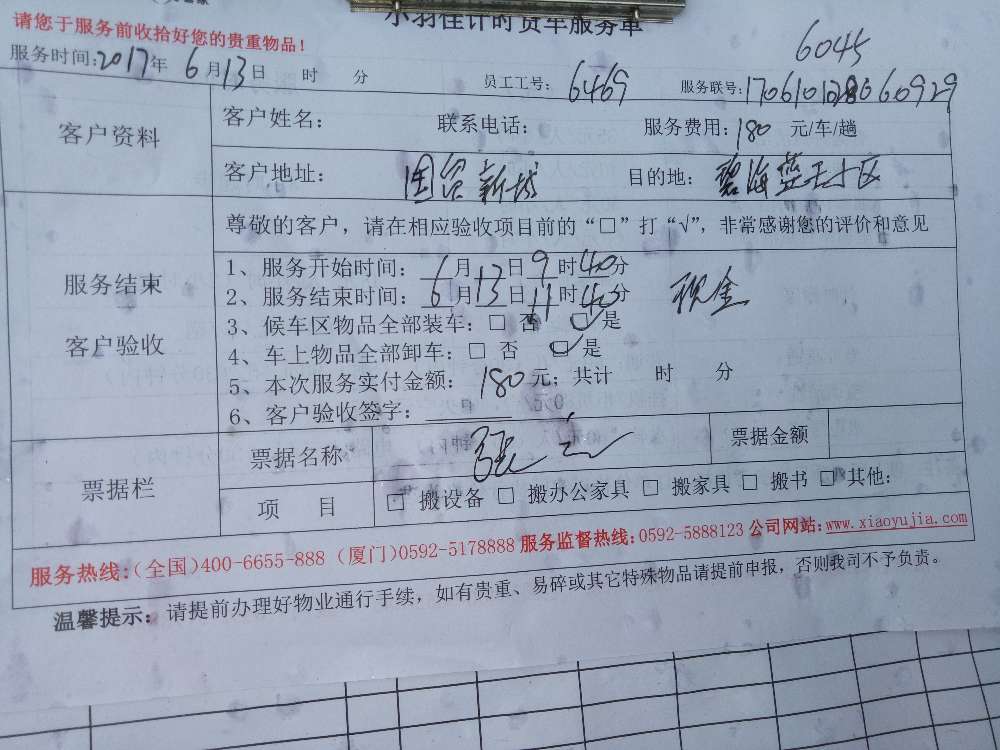 小羽佳计时货车服务单
请您于服务前收拾好您的贵重物品!
6045
服务时间:2017年 6月13日 时 分 员工工号: 6469 服务联号:
客户资料
客户姓名: 联系电话: 服务费用: 180 元/车/趟
客户地址: 国贸新城 目的地: 碧海蓝天小区
尊敬的客户，请在相应验收项目前的“□”打“√”，非常感谢您的评价和意见
服务结束
客户验收
1、服务开始时间: 6月13日9时40分
2、服务结束时间: 6月13日11时40分 现金
3、候车区物品全部装车: □ 否 □√是
4、车上物品全部卸车: □ 否 □√是
5、本次服务实付金额: 180 元; 共计 时 分
6、客户验收签字:
票据栏
票据名称 票据金额
项 目 □ 搬设备 □ 搬办公家具 □ 搬家具 □ 搬书 □ 其他:
服务热线:(全国)400-6655-888 (厦门)0592-5178888 服务监督热线:0592-5888123 公司网站:www.xiaoyujia.com
温馨提示: 请提前办理好物业通行手续，如有贵重、易碎或其它特殊物品请提前申报，否则我司不予负责。